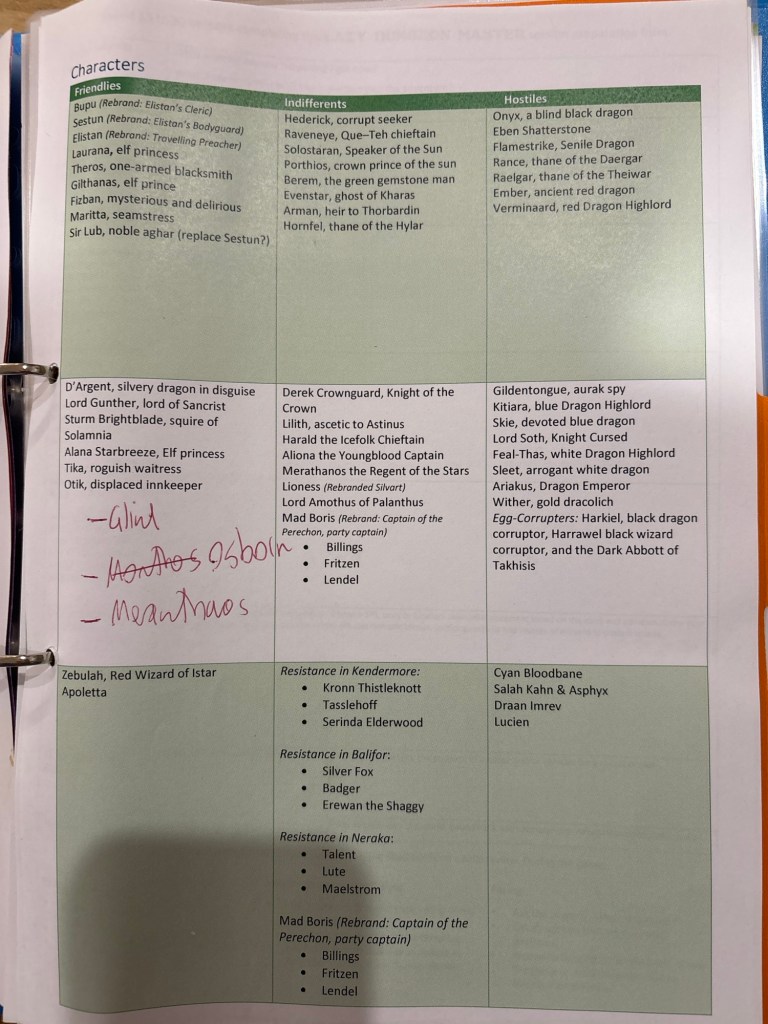 Characters
Friendlies
Bupu (Rebrand: Elistan's Cleric)
Sestun (Rebrand: Elistan's Bodyguard)
Elistan (Rebrand: Travelling Preacher)
Laurana, elf princess
Theros, one-armed blacksmith
Gilthanas, elf prince
Fizban, mysterious and delirious
Maritta, seamstress
Sir Lub, noble aghar (replace Sestun?)
Indifferents
Hederick, corrupt seeker
Raveneye, Que–Teh chieftain
Solostaran, Speaker of the Sun
Porthios, crown prince of the sun
Berem, the green gemstone man
Evenstar, ghost of Kharas
Arman, heir to Thorbardin
Hornfel, thane of the Hylar
Hostiles
Onyx, a blind black dragon
Eben Shatterstone
Flamestrike, Senile Dragon
Rance, thane of the Daergar
Raelgar, thane of the Theiwar
Ember, ancient red dragon
Verminaard, red Dragon Highlord
D'Argent, silvery dragon in disguise
Lord Gunther, lord of Sancrist
Sturm Brightblade, squire of
Solamnia
Alana Starbreeze, Elf princess
Tika, roguish waitress
Otik, displaced innkeeper
– Glint
– Osborn
– Meanthaos
Derek Crownguard, Knight of the
Crown
Lilith, ascetic to Astinus
Harald the Icefolk Chieftain
Aliona the Youngblood Captain
Merathanos the Regent of the Stars
Lioness (Rebranded Silvart)
Lord Amothus of Palanthus
Mad Boris (Rebrand: Captain of the
Perechon, party captain)
• Billings
• Fritzen
• Lendel
Gildentongue, aurak spy
Kitiara, blue Dragon Highlord
Skie, devoted blue dragon
Lord Soth, Knight Cursed
Feal-Thas, white Dragon Highlord
Sleet, arrogant white dragon
Ariakus, Dragon Emperor
Wither, gold dracolich
Egg-Corrupters: Harkiel, black dragon
corruptor, Harrawel black wizard
corruptor, and the Dark Abbott of
Takhisis
Zebulah, Red Wizard of Istar
Apoletta
Resistance in Kendermore:
• Kronn Thistleknott
• Tasslehoff
• Serinda Elderwood
Resistance in Balifor:
• Silver Fox
• Badger
• Erewan the Shaggy
Resistance in Neraka:
• Talent
• Lute
• Maelstrom
Mad Boris (Rebrand: Captain of the
Perechon, party captain)
• Billings
• Fritzen
• Lendel
Cyan Bloodbane
Salah Kahn & Asphyx
Draan Imrev
Lucien